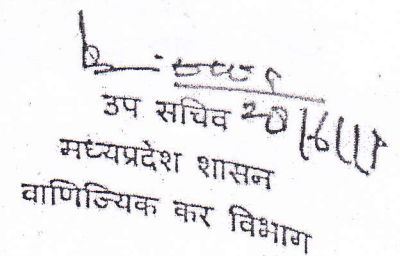 उप सचिव
मध्यप्रदेश शासन
वाणिज्यिक कर विभाग